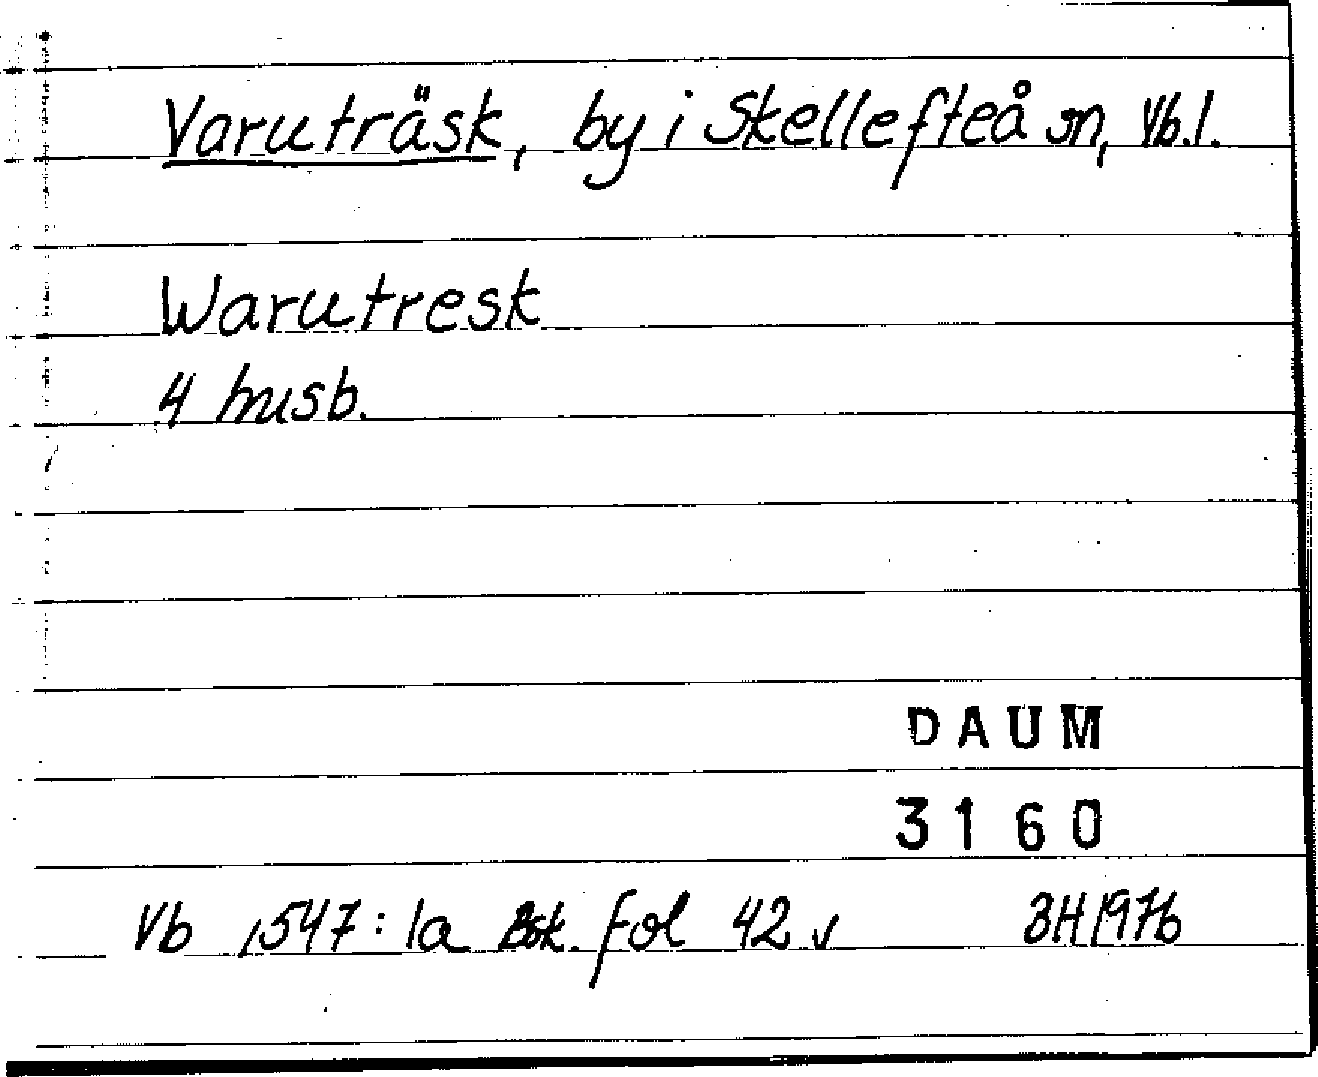 Varuträsk, by i Skellefteå sn, Vb.l.
Warutresk
4 husb.
DAUM
3160
Vb 1547:1a Bsk. fol 42 v BH 1976